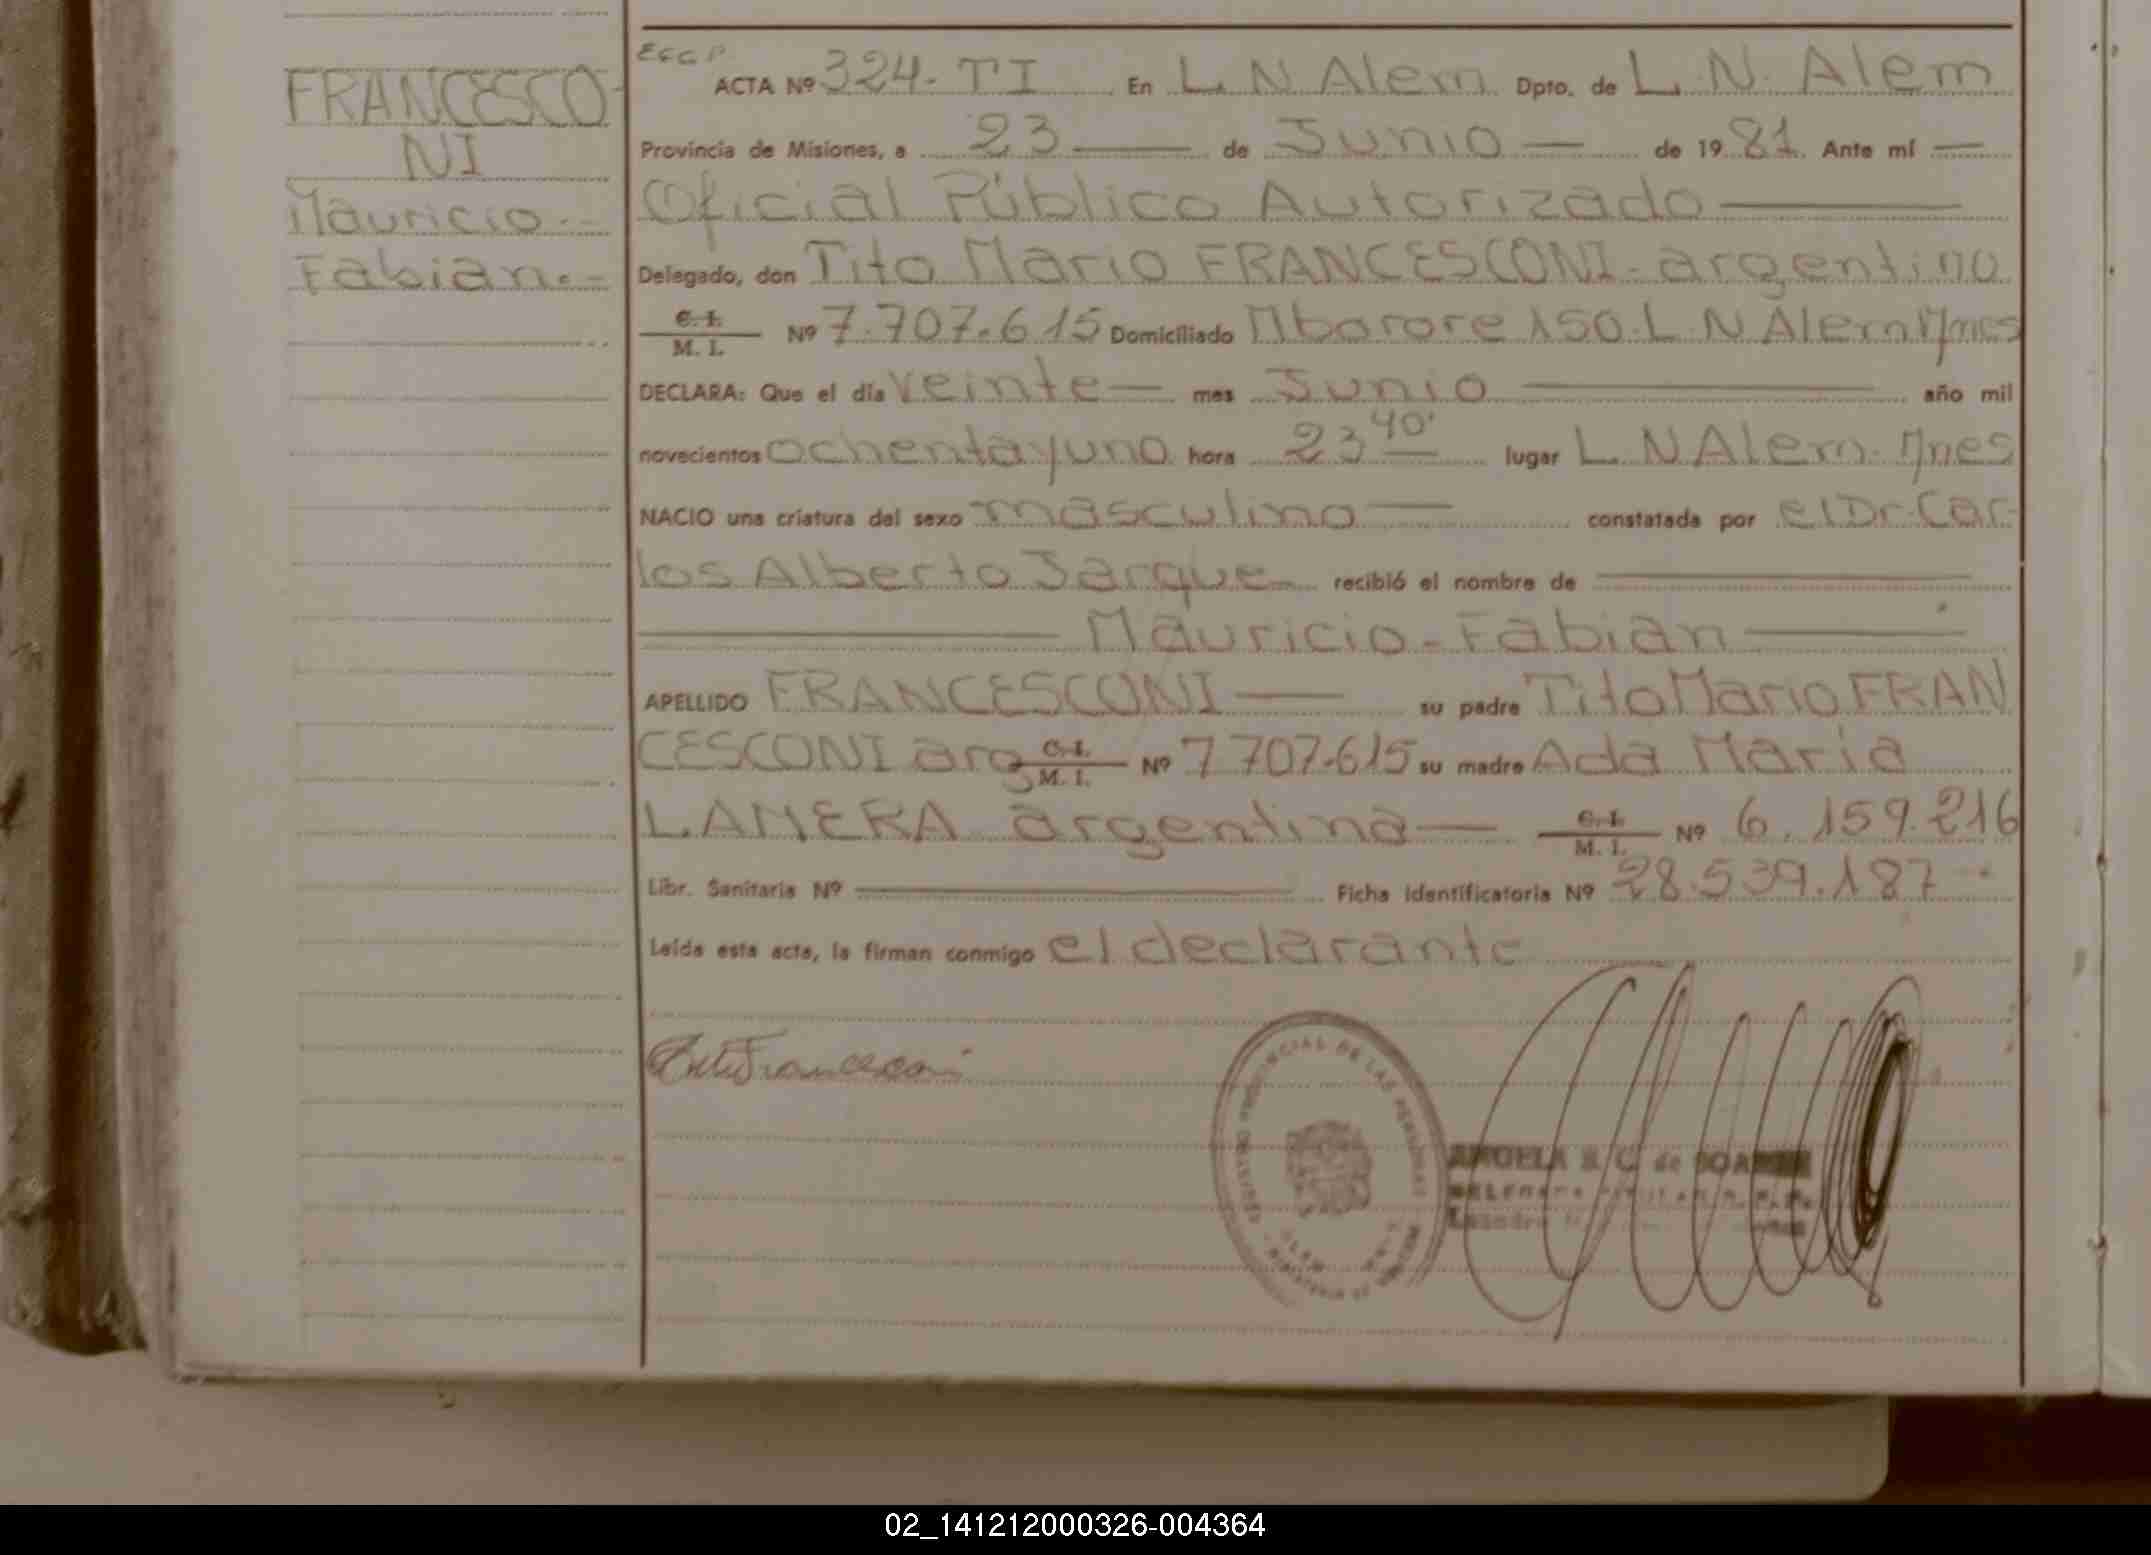 FRANCESCO-
NI
Mauricio
Fabian.-
ACTA Nº 324- TI En L. N Alem Dpto. de L. N. Alem
Provincia de Misiones, a 23 de Junio de 1981 Ante mí
Oficial Público Autorizado
Delegado, don Tito Mario FRANCESCONI- argentino
C. I.
M. I. Nº 7.707.615 Domiciliado Mborore 150. L N Alem Mnes
DECLARA: Que el día veinte mes Junio año mil
novecientos ochenta y uno hora 23 40' lugar L N Alem. Mnes
NACIO una criatura del sexo masculino constatada por el Dr. Car-
los Alberto Jarque recibió el nombre de
Mauricio - Fabian
APELLIDO FRANCESCONI su padre Tito Mario FRAN
CESCONI arg C. I. M. I. Nº 7 707.615 su madre Ada Maria
LAMERA argentina C. I. M. I. Nº 6.159.216
Libr. Sanitaria Nº Ficha Identificatoria Nº 28.539.187
Leída esta acta, la firman conmigo el declarante
PROVINCIAL DE LAS PERSONAS
REGISTRO
ANGELA S. C. de
Leandro N.
02_141212000326-004364